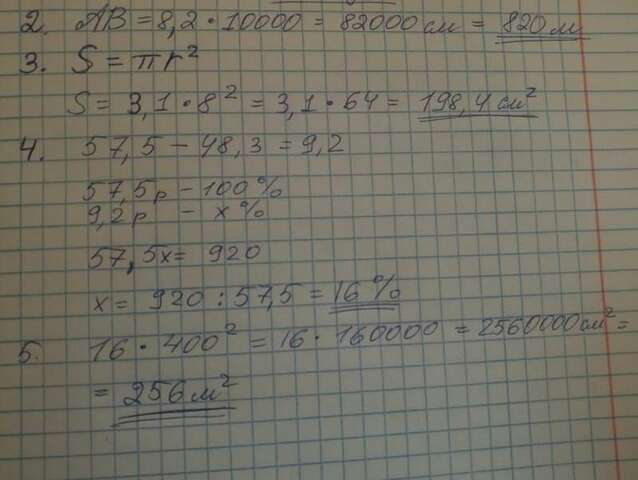 2. AB = 8,2 · 10000 = 82000 см = 820 м
3. S = πr²
S = 3,1 · 8² = 3,1 · 64 = 198,4 см²
4. 57,5 – 48,3 = 9,2
57,5р – 100%
9,2р – x%
57,5x = 920
x = 920 : 57,5 = 16%
5. 16 · 400² = 16 · 160000 = 2560000 см² =
= 256 м²